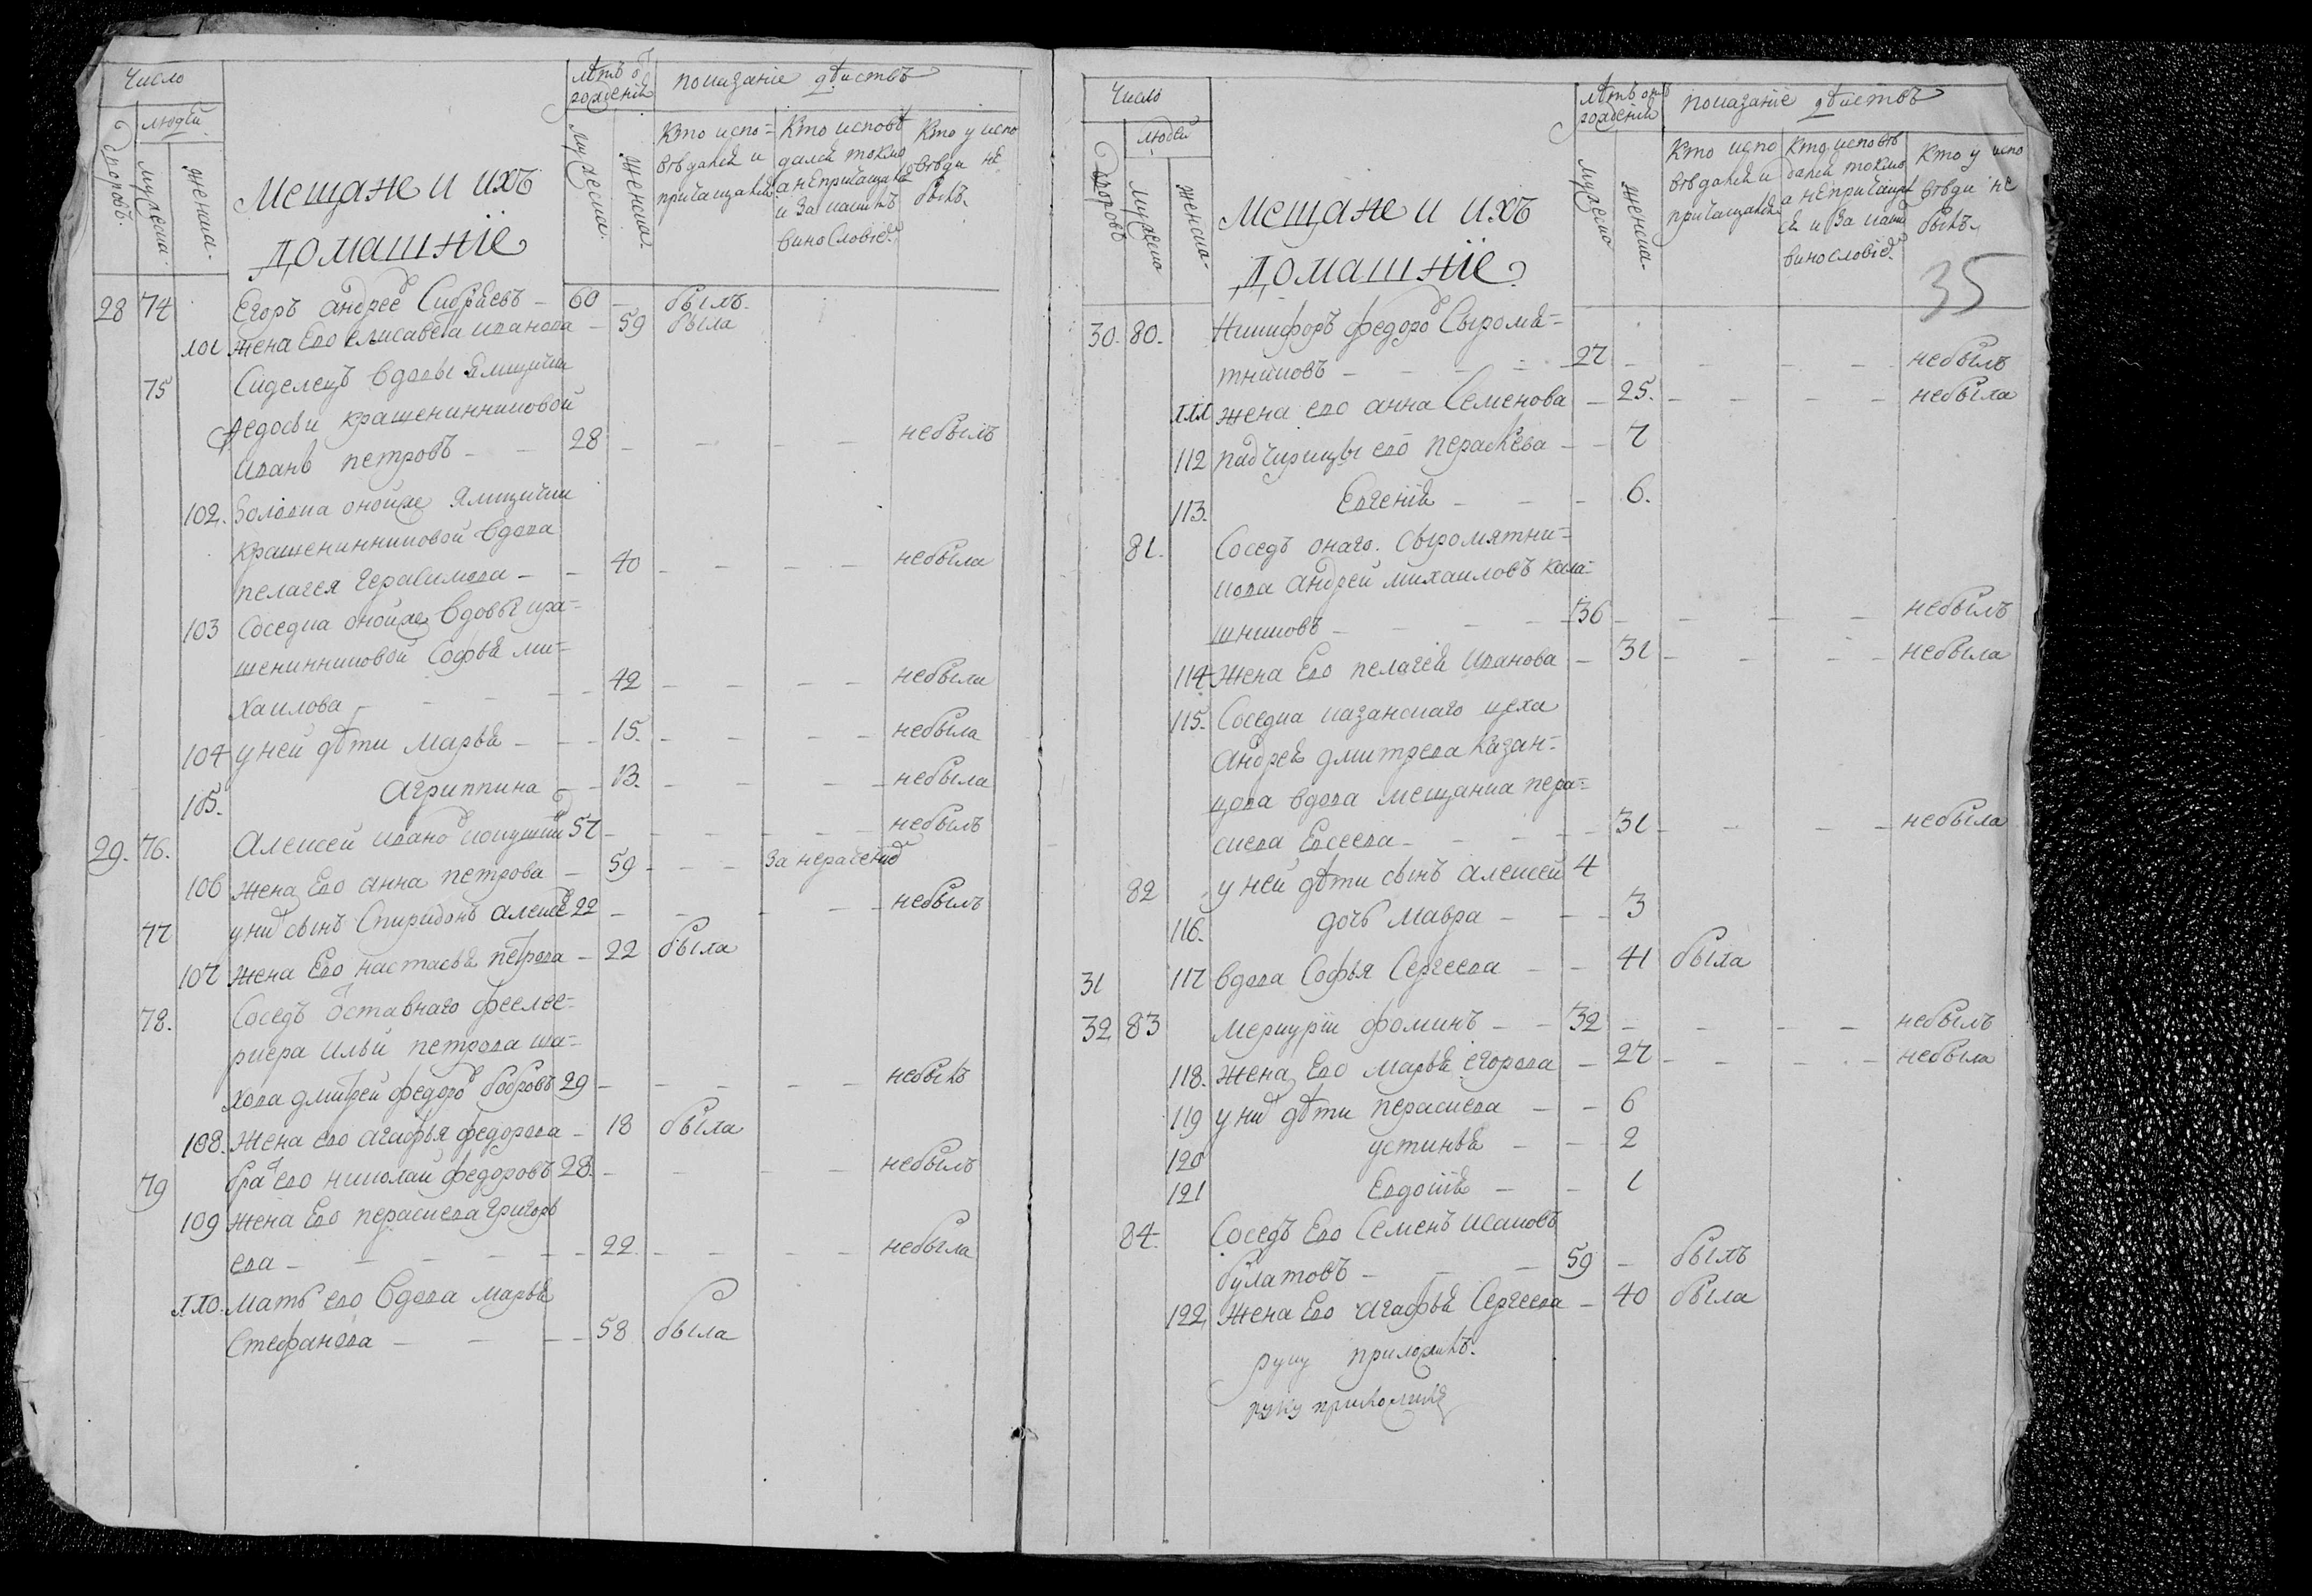 Число
людей
дворовъ
мужеска
женска
Мещане и ихъ
домашніе
лѣтъ от
рожденія
мужеска
женска
показаніе дѣйствъ
Кто испо=
вѣдался и
причащался
Кто исповѣ
дался токмо
а не причащался
и за какимъ
винословіе
Кто у испо
вѣди не
былъ
28 74 Егоръ андрее Сибряевъ 60 былъ
101 жена Ево елисавета иванова 59 была
75 Сиделецъ вдовы Ямщички
Федосьи крашенинниковой
иванъ петровъ 28 небылъ
102 Золовка онойже Ямщички
крашенинниковой вдова
пелагея герасимова 40 небыла
103 Соседка онойже вдовы кра=
шенинниковой Софья ми=
хаилова 42 небыла
104 у ней дѣти Марья 15 небыла
105 агриппина 13 небыла
29 76 Алексей ивано кокушки 57 небылъ
106 жена Ево анна петрова 59 за нерачение
77 у ни сынъ Спиридонъ алексее 22 небылъ
107 жена Ево настасья петрова 22 была
78 Соседъ отставнаго фелье=
риера ильи петрова ша=
хова дмитрей федоро бобровъ 29 небылъ
108 жена ево агафья федорова 18 была
79 бра ево николай федоровъ 28 небылъ
109 жена Ево параскева григорь
ева 22 небыла
110 мать ево вдова марья
Стефанова 58 была
Число
людей
дворовъ
мужеска
женска
Мещане и ихъ
домашніе
лѣтъ от
рожденія
мужеска
женска
показаніе дѣйствъ
Кто испо
вѣдался и
причащался
Кто исповѣ
дался токмо
а не причаща
ся и за каки
винословіе
Кто у испо
вѣди не
былъ
35
30 80 Никифоръ федоро Сыромя=
тниковъ 27 небылъ
111 жена ево анна Семенова 25 небыла
112 падчирицы ево параскева 7
113 Евгенія 6
81 Соседъ онаго Сыромятни=
кова андрей михаиловъ кала=
шниковъ 36 небылъ
114 Жена Ево пелагея иванова 31 небыла
115 Соседка казанскаго цеха
андрея дмитрева казан=
цова вдова мещанка пара=
скева Евсеева 31 небыла
82 у ней дѣти сынъ алексей 4
116 дочь мавра 3
31 117 вдова Софья Сергеева 41 была
32 83 меркурїи фоминъ 32 небылъ
118 жена Ево марья егорова 27 небыла
119 у ни дѣти параскева 6
120 устинья 2
121 Евдокія 1
84 Соседъ Ево Семенъ исаковъ
булатовъ 59 былъ
122 жена Ево агафья Сергеева 40 была
руку приложилъ
руку приложилъ